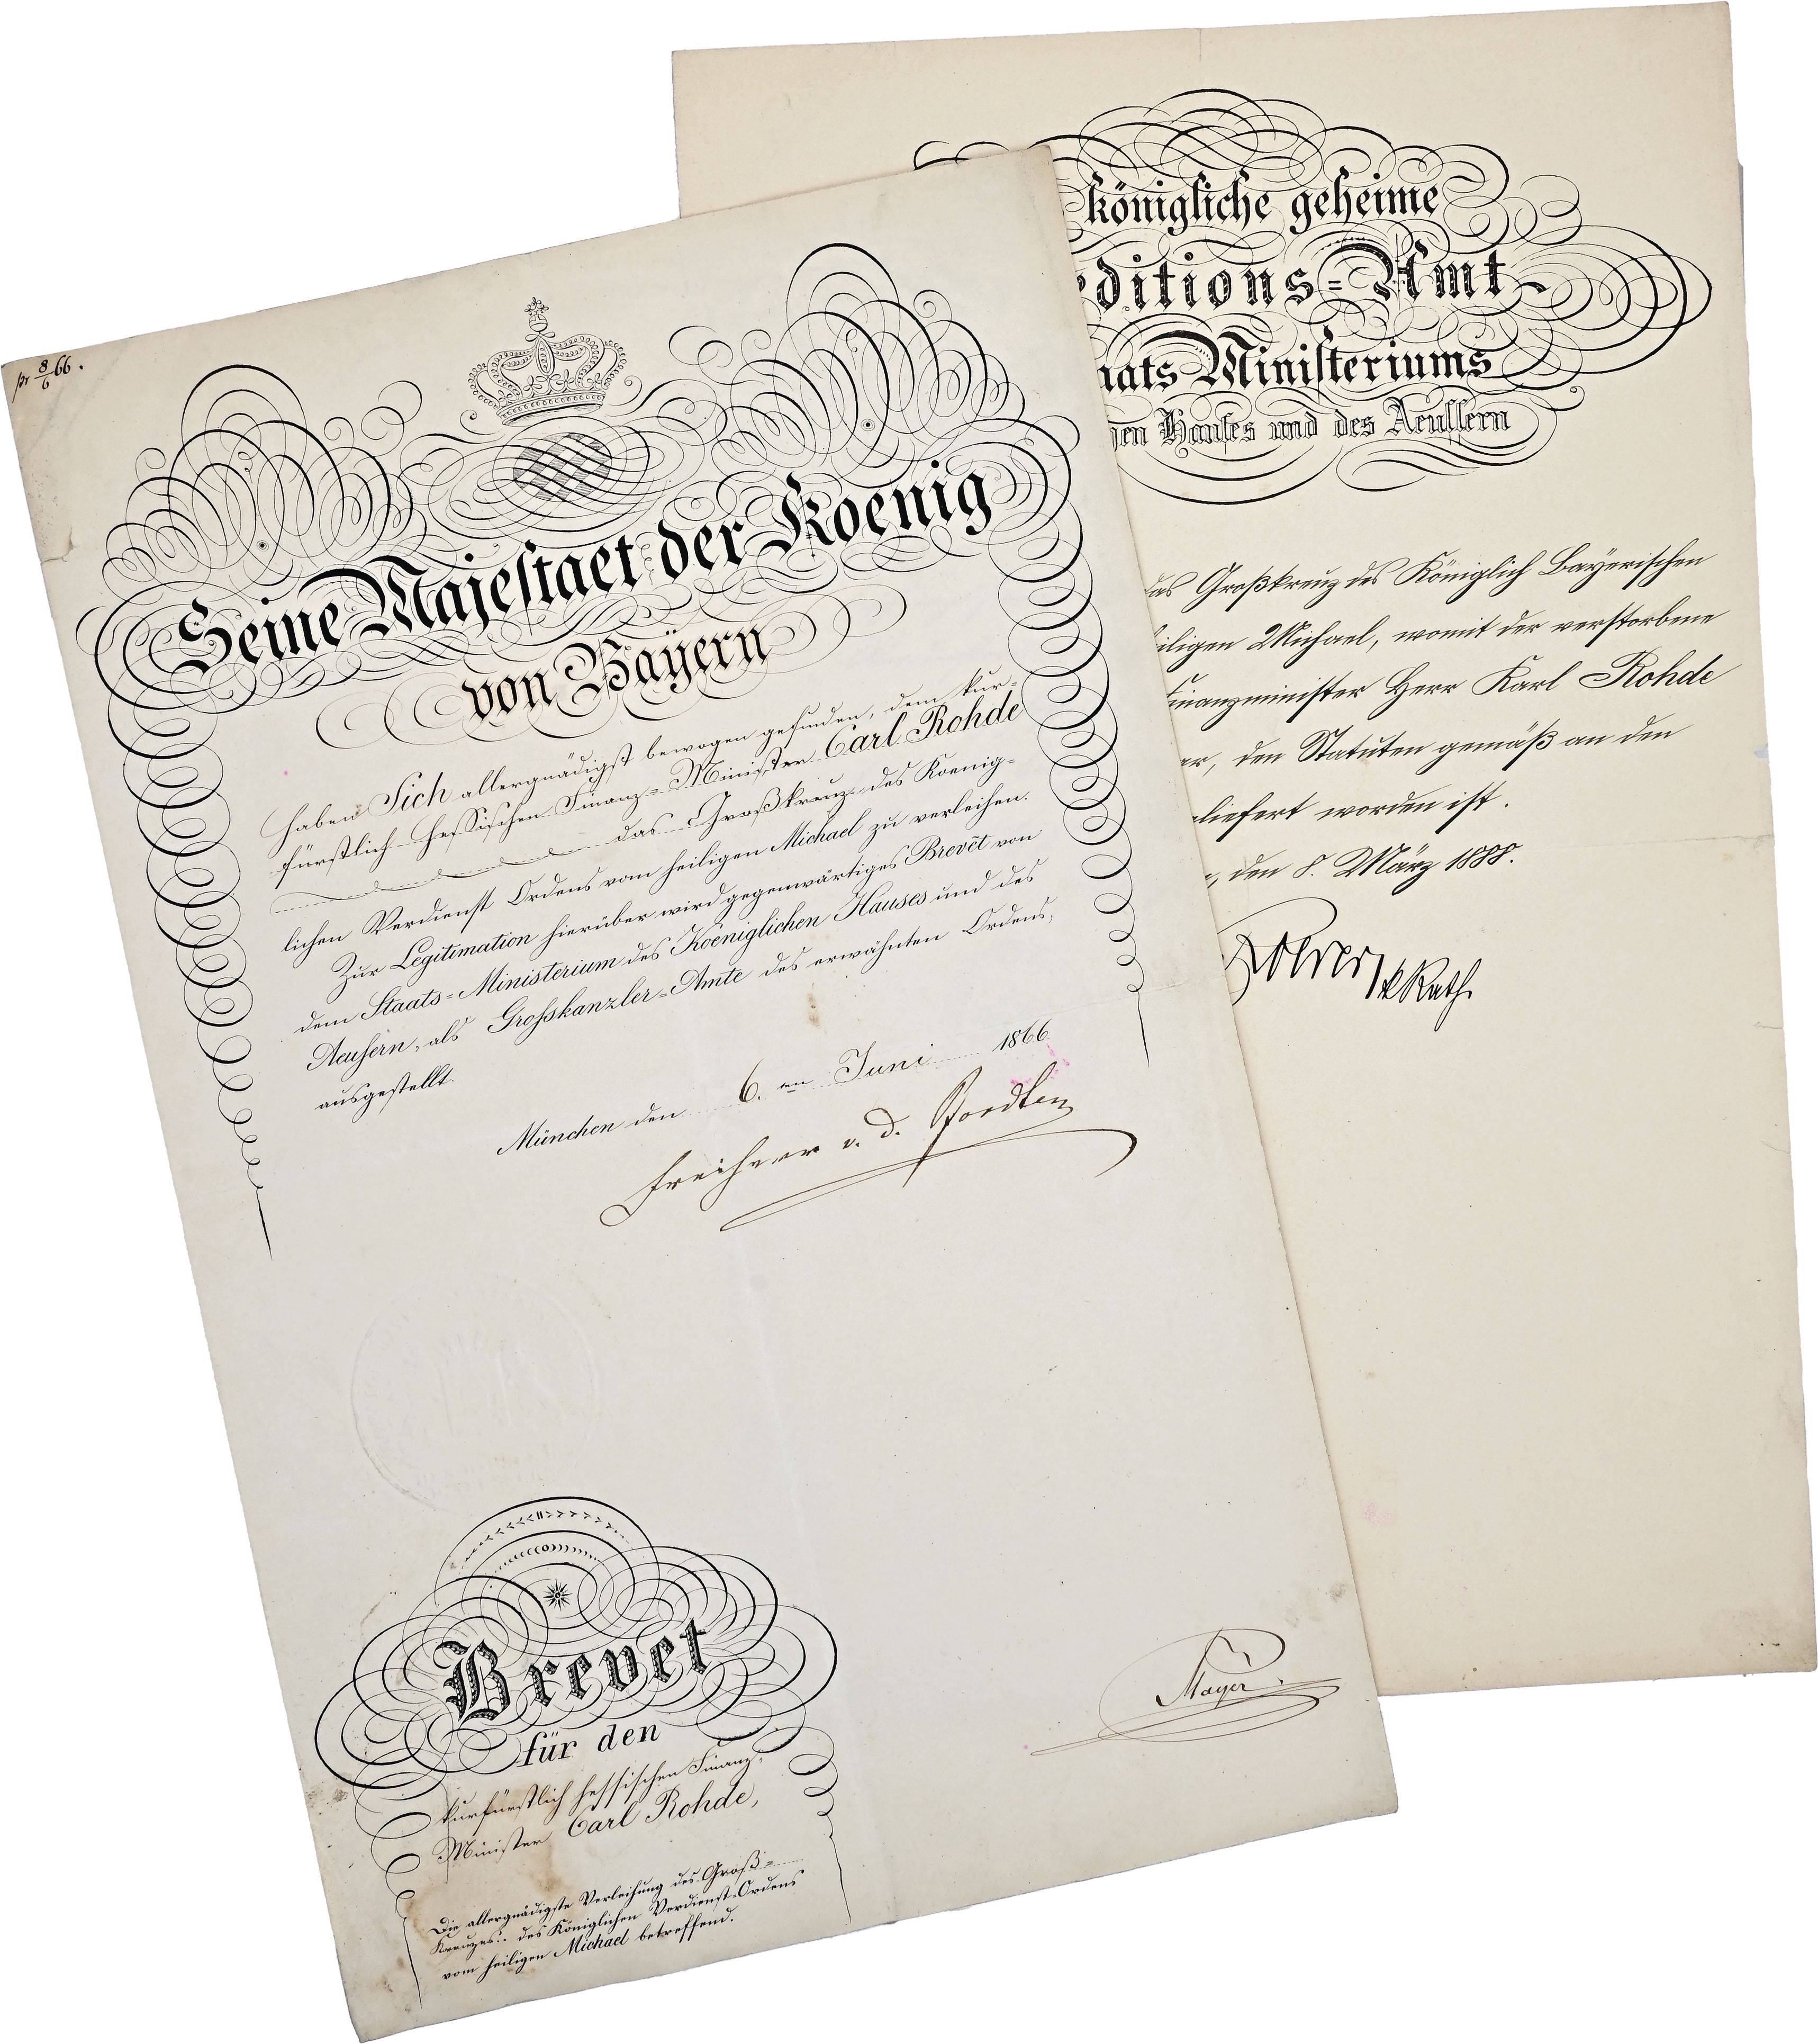 pr 8/6 66.
Seine Majestaet der Koenig
von Bayern
haben Sich allergnädigst bewogen gefunden, dem kur-
fürstlich hessischen Finanz-Minister Carl Rohde
das Großkreuz des Koenig-
lichen Verdienst Ordens vom heiligen Michael zu verleihen.
Zur Legitimation hierüber wird gegenwärtiges Brevet von
dem Staats-Ministerium des Koeniglichen Hauses und des
Aeusern, als Grosskanzler-Amte des erwähnten Ordens,
ausgestellt.
München den 6.en Juni 1866
Freiherr v. d. Pfordten
Brevet
für den
kurfürstlich hessischen Finanz-
Minister Carl Rohde,
Die allergnädigste Verleihung des Groß-
Kreuzes des Königlichen Verdienst-Ordens
vom heiligen Michael betreffend.
Mayer
königliche geheime
editions-Amt
aats Ministeriums
hen Hauses und des Aeussern
das Großkreuz des Königlich Bayerischen
eiligen Michael, womit der verstorbene
Finanzminister Herr Karl Rohde
ar, den Statuten gemäß an den
liefert worden ist.
, den 8. März 1888.
Rath